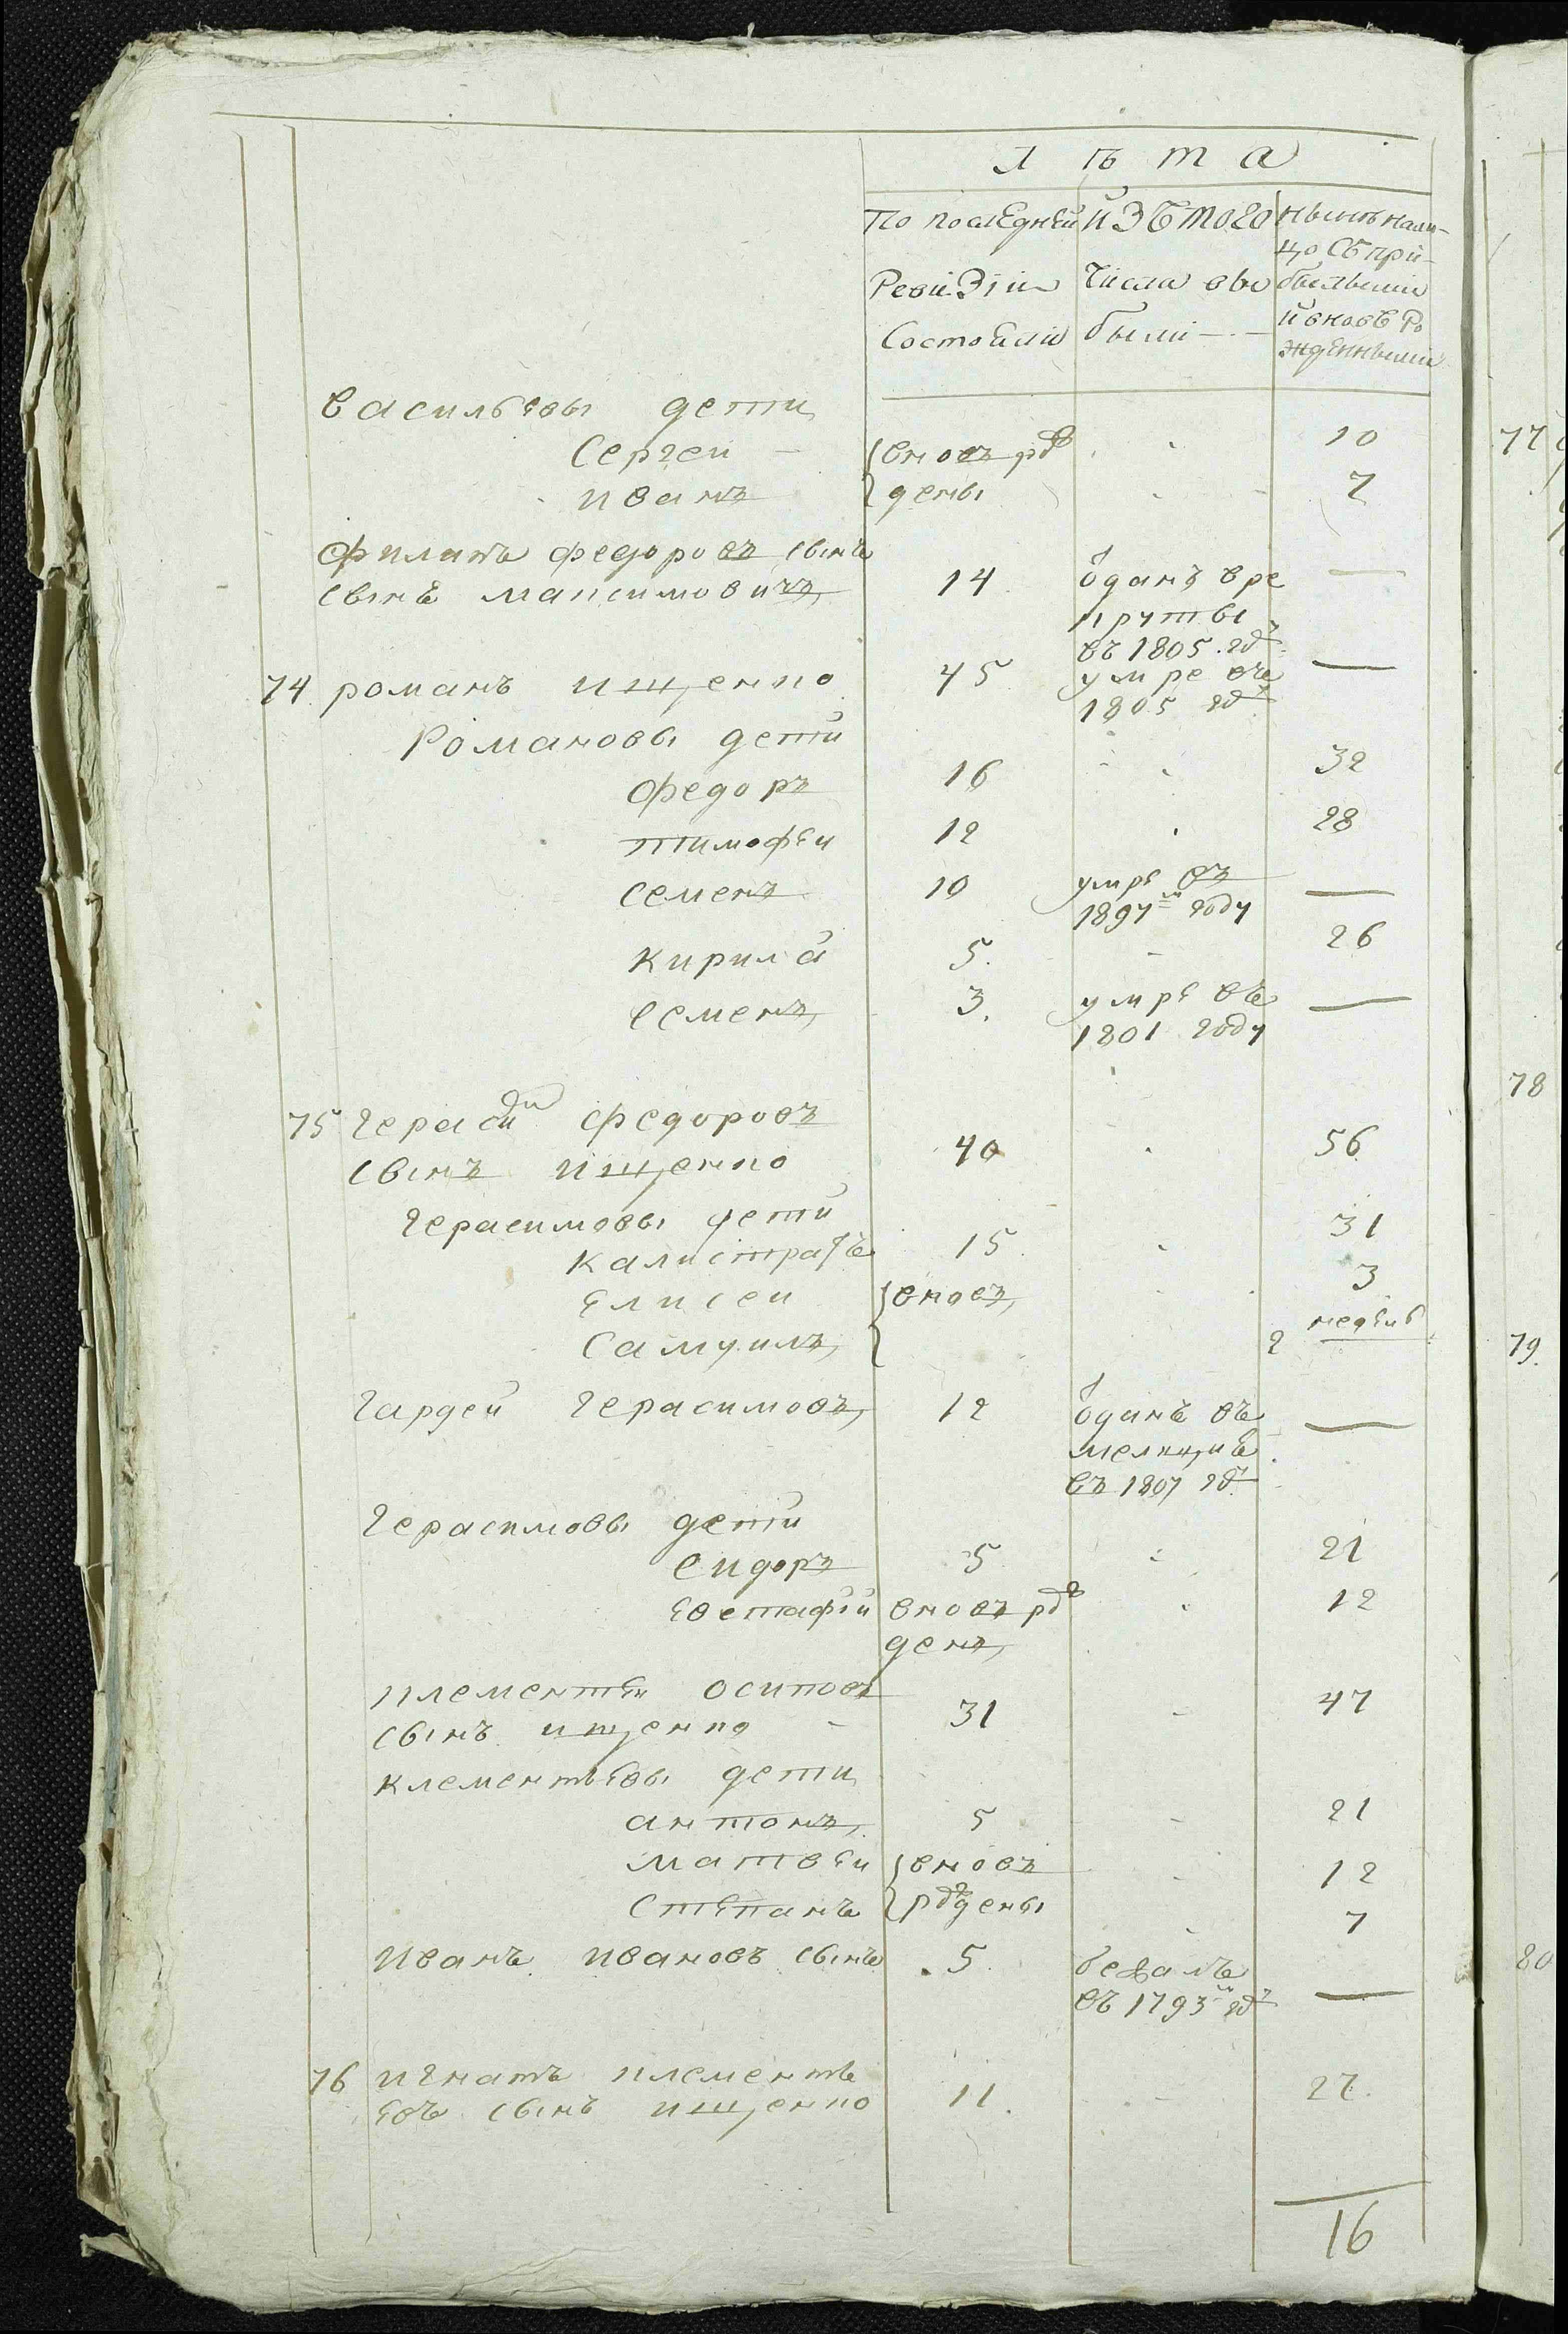 Лѣта
По последней изъ того нынѣ нали-
цо съ при-
Ревизіи числа вы бывшими
и вновь ро
Состояли были - - жденными
васильевы дети
Сергеи - вновъ рож 10
иванъ дены 7
Филатъ федоровъ сынъ
сынъ максимовичъ 14 одданъ вре
круты
въ 1805 годᵘ —
74 романъ ищенко 45 умре въ —
1805 годᵘ
Романовы дети
Федоръ 16 32
тимофеи 12 28
семенъ 10 умре въ —
1797ᵐ году
кирила 5 26
семенъ 3 умре въ —
1801 году
75 герасимъ федоровъ
сынъ ищенко 40 56
герасимовы дети
калистратъ 15 31
елисеи вновъ 3
самуилъ 2 недели
гардей герасимовъ 12 одданъ въ —
мелицию
въ 1807 годᵘ
герасимовы дети
сидоръ 5 21
евстафіи вновъ рож 12
денъ
клементеи осиповъ
сынъ ищенко - 31 47
клементьевы дети
антонъ 5 21
матвеи вновъ 12
степанъ рождены 7
иванъ ивановъ сынъ 5 бежалъ
въ 1793ᵐ годᵘ —
76 игнатъ клементь
евъ сынъ ищенко 11 27
16
77
78
79
80